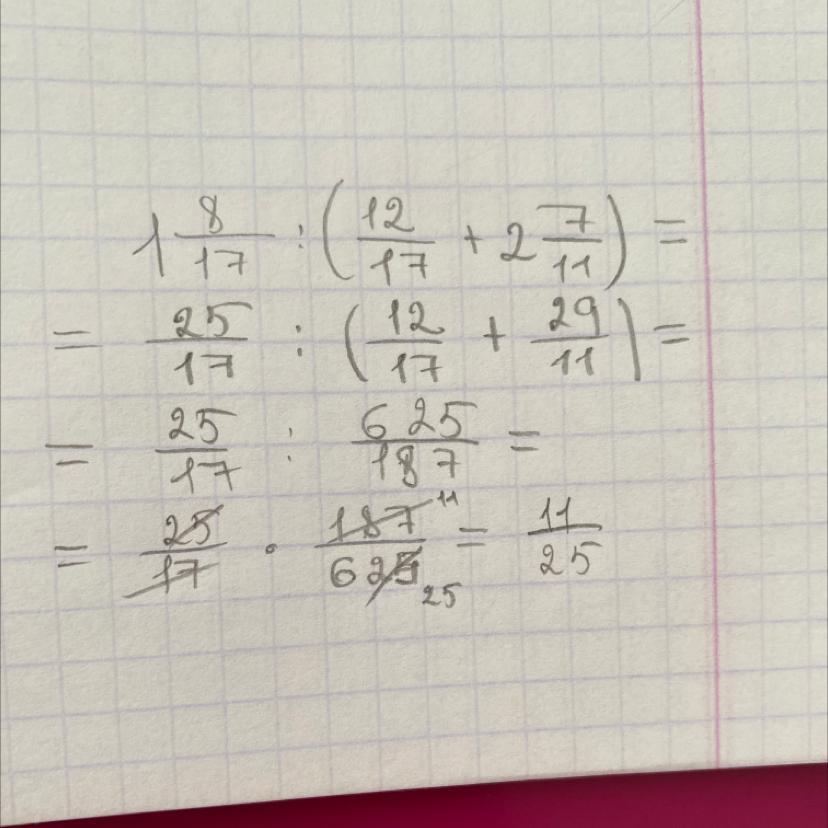 1 8/17 : (12/17 + 2 7/11) =
= 25/17 : (12/17 + 29/11) =
= 25/17 : 625/187 =
= 25/17 · 187 11/625 25 = 11/25